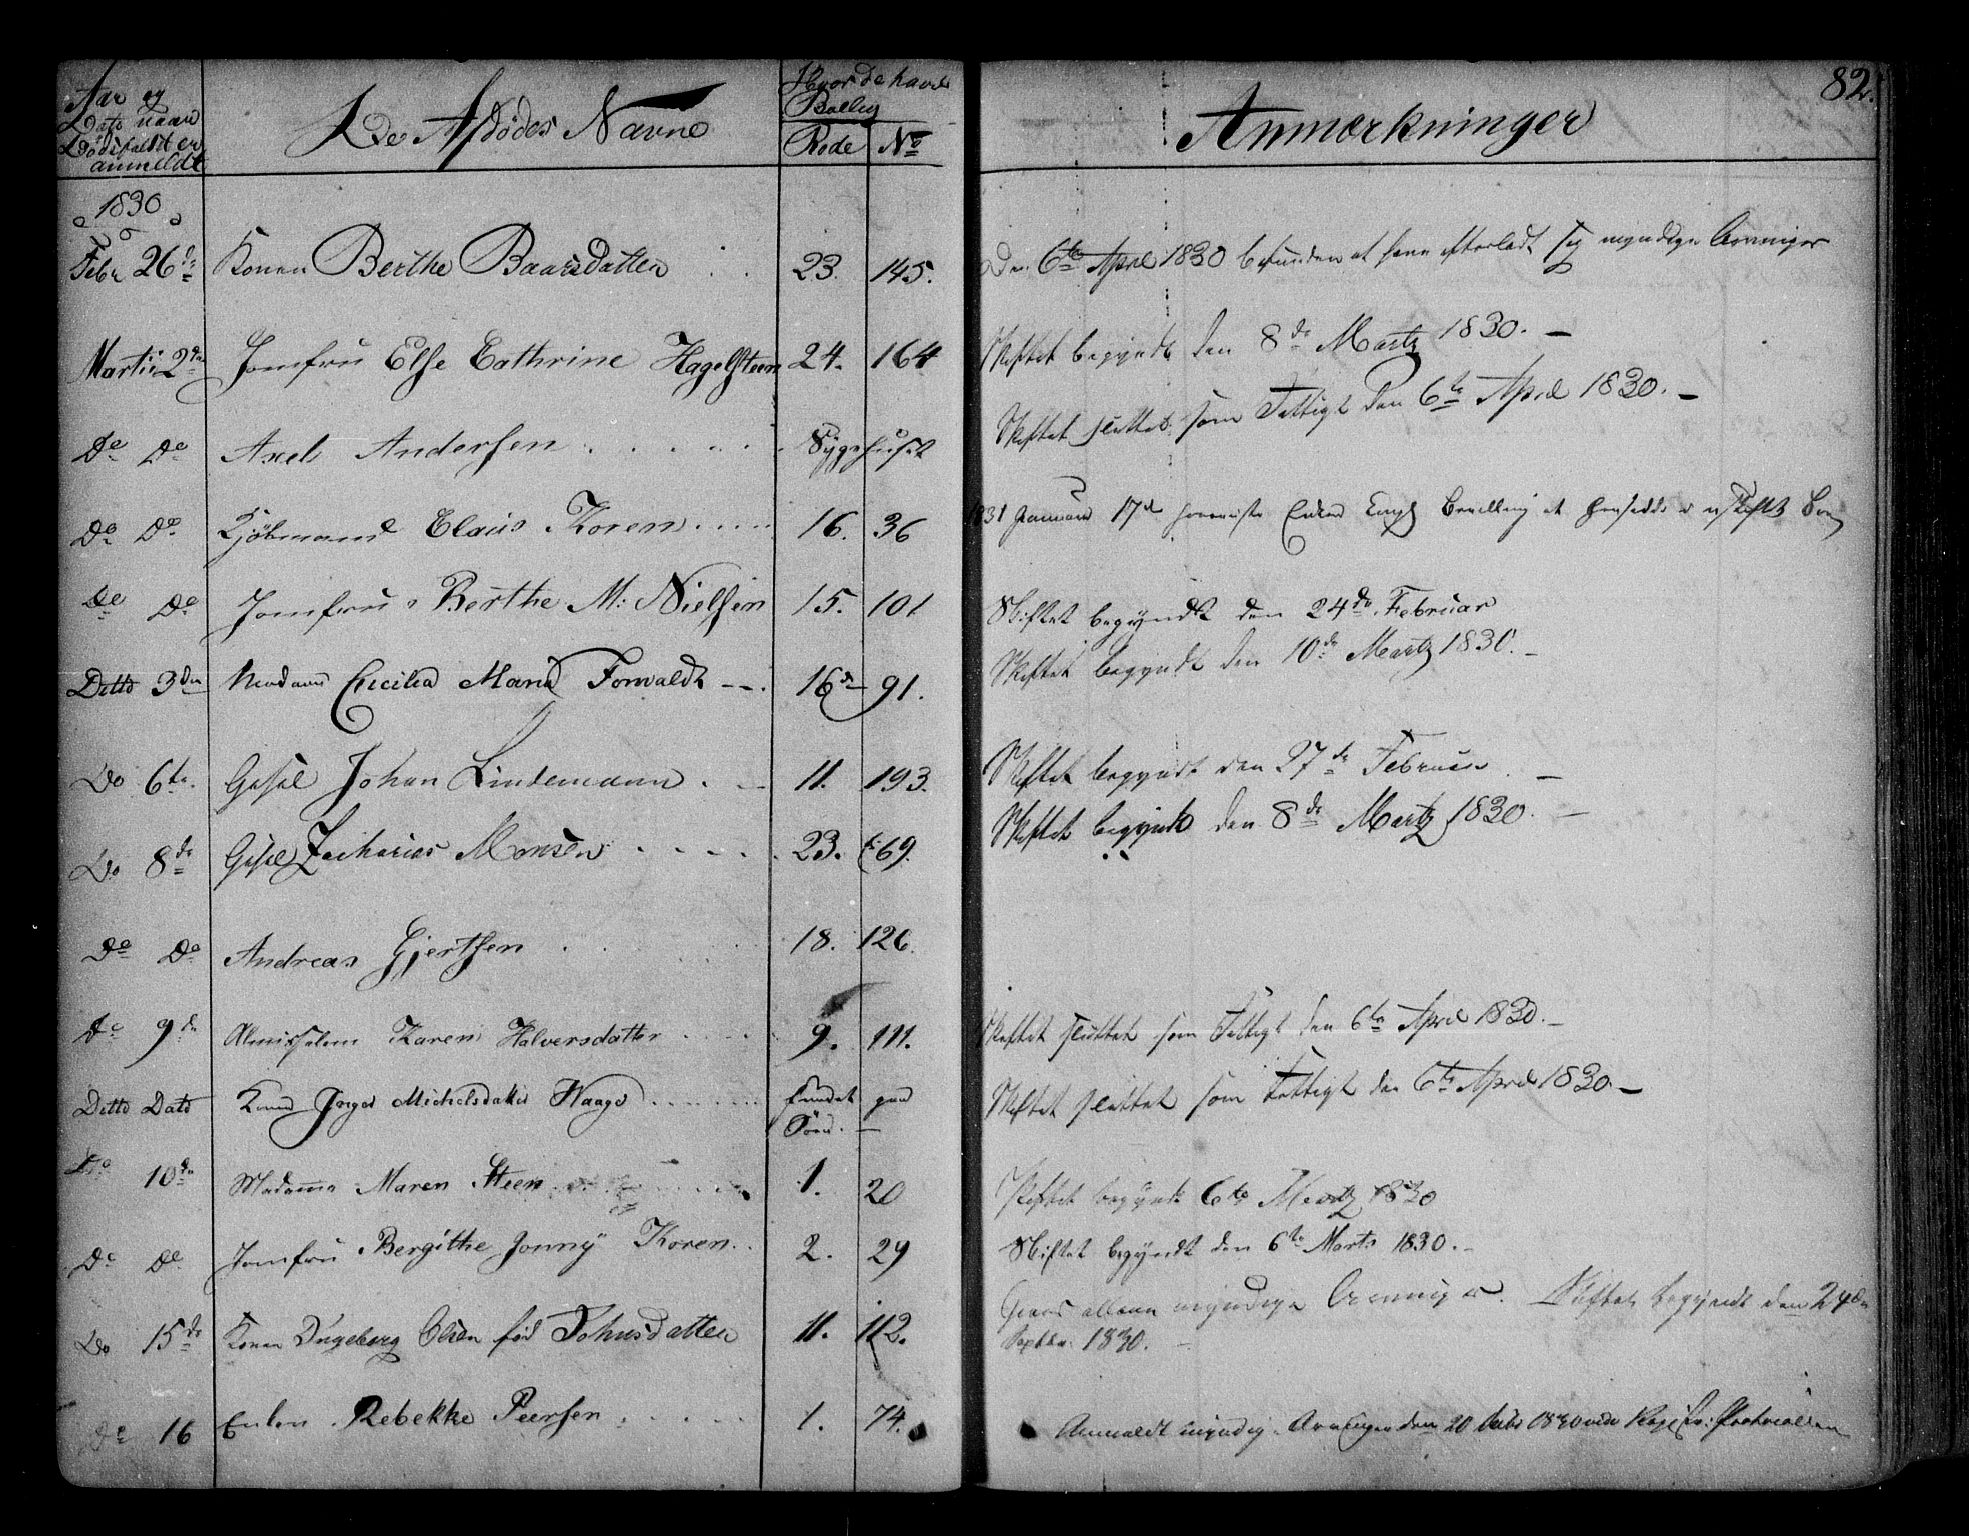 Aar og
Dato naar
Dödsfaldet er
anmeldt
De Afdødes Navne
Hvor de havde
Bolig
Rode No
Anmærkninger
82.
1830
Febr 26de Konen Berthe Baarsdatter . . 23. 145. Den 6te April 1830 befunden at have efterladt sig myndige Arvinger
Martii 2den Jomfru Else Cathrine Hagelsteen 24. 164 Skiftet begyndt den 8de Martz 1830. —
Skiftet sluttet som Fattigt den 6te April 1830. —
Do Do Axel Andersen . . . . . Sygehuset
Do Do Kjöbmand Claus Koren . . . . . 16. 36 1831 Januar 17de Enken Kongl Bevilling at hensidde i uskiftet Boe
Do Do Jomfru Berthe M: Nielsen 15. 101 Skiftet begyndt den 24de Februar
Ditto 3den Madam Cicilia Maria Fonvaldt --. 16de 91. Skiftet begyndt den 10de Martz 1830. —
Do 6te. Gesel Johan Lindemann . — 11. 193. Skiftet begyndt den 27de Februar . —
Do 8de Gesel Zacharias Monsen . . . . . 23. 69. Skiftet begyndt den 8de Martz 1830. —
Do Do Andreas Gjertsen . . . 18. 126.
Do 9de Almisselem Karen Halversdatter . . . . 9. 111. Skiftet sluttet som Fattigt den 6te April 1830. —
Ditto Dato Inger Michelsdatter Haage . . . . . . . fundet paa Skiftet sluttet som Fattigt den 6te April 1830. —
Söen. —
Do 10de Madamme Maren Steen . . . 1. 20 Skiftet begyndt 6te Martz 1830
Do Do Jomfru Bergithe Jonny Koren . . 2. 29 Skiftet begyndt den 6te Marts 1830. -
Do 15de Konen Ingeborg Olsen fød Johnsdatter 11. 112. myndige Arvinger. Skiftet begyndt den 24de
Septbr. 1830. —
Do 16 Enken Rebekke Peersen . . . . . 1. 74. Anmeldt myndig Arvinger den 20 1830 ved Protocollen